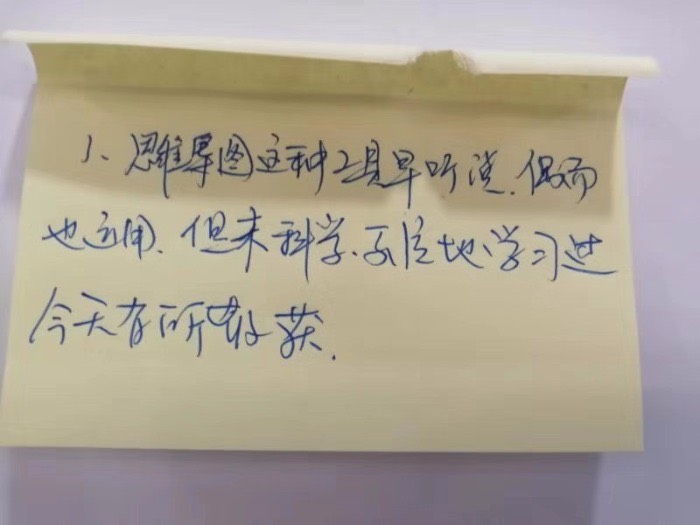 1、思维导图这种工具早听说，偶而
也运用，但未科学、系统地学习过
今天有所收获.